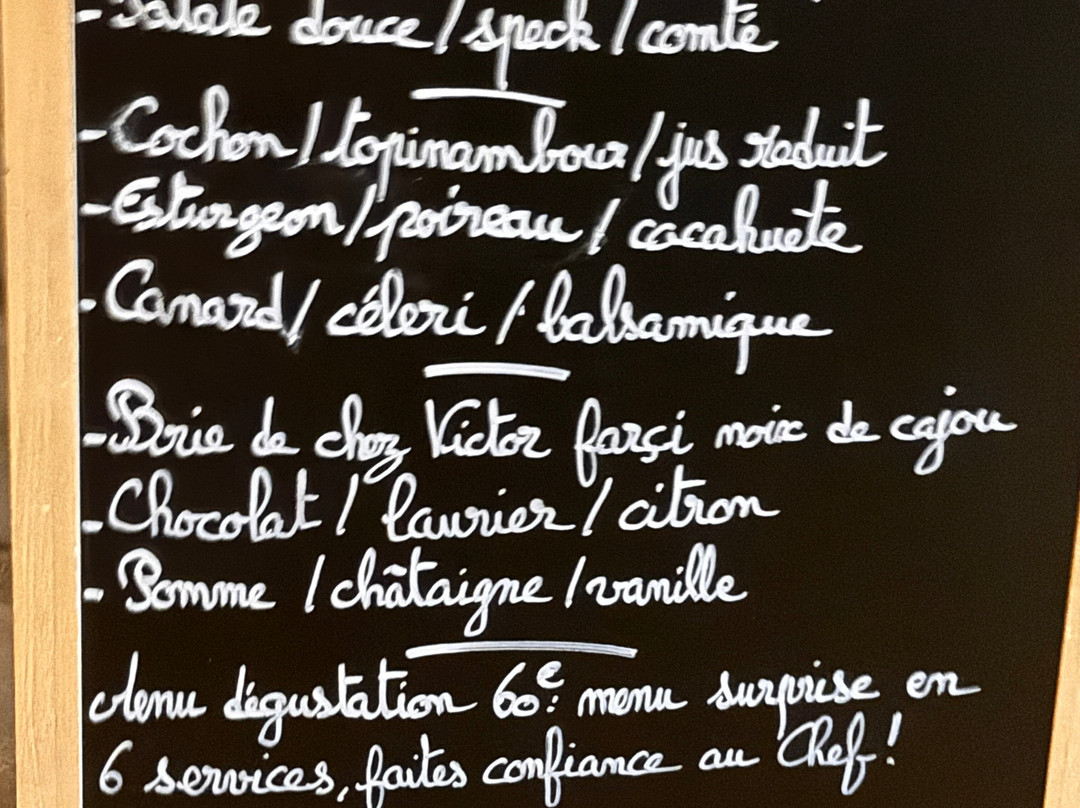 -Patate douce / speck / comté
-Cochon / topinambour / jus réduit
-Esturgeon / poireau / cacahuète
-Canard / céleri / balsamique
-Brie de chez Victor farçi noix de cajou
-Chocolat / laurier / citron
-Pomme / châtaigne / vanille
Menu dégustation 60€: menu surprise en
6 services, faites confiance au Chef!